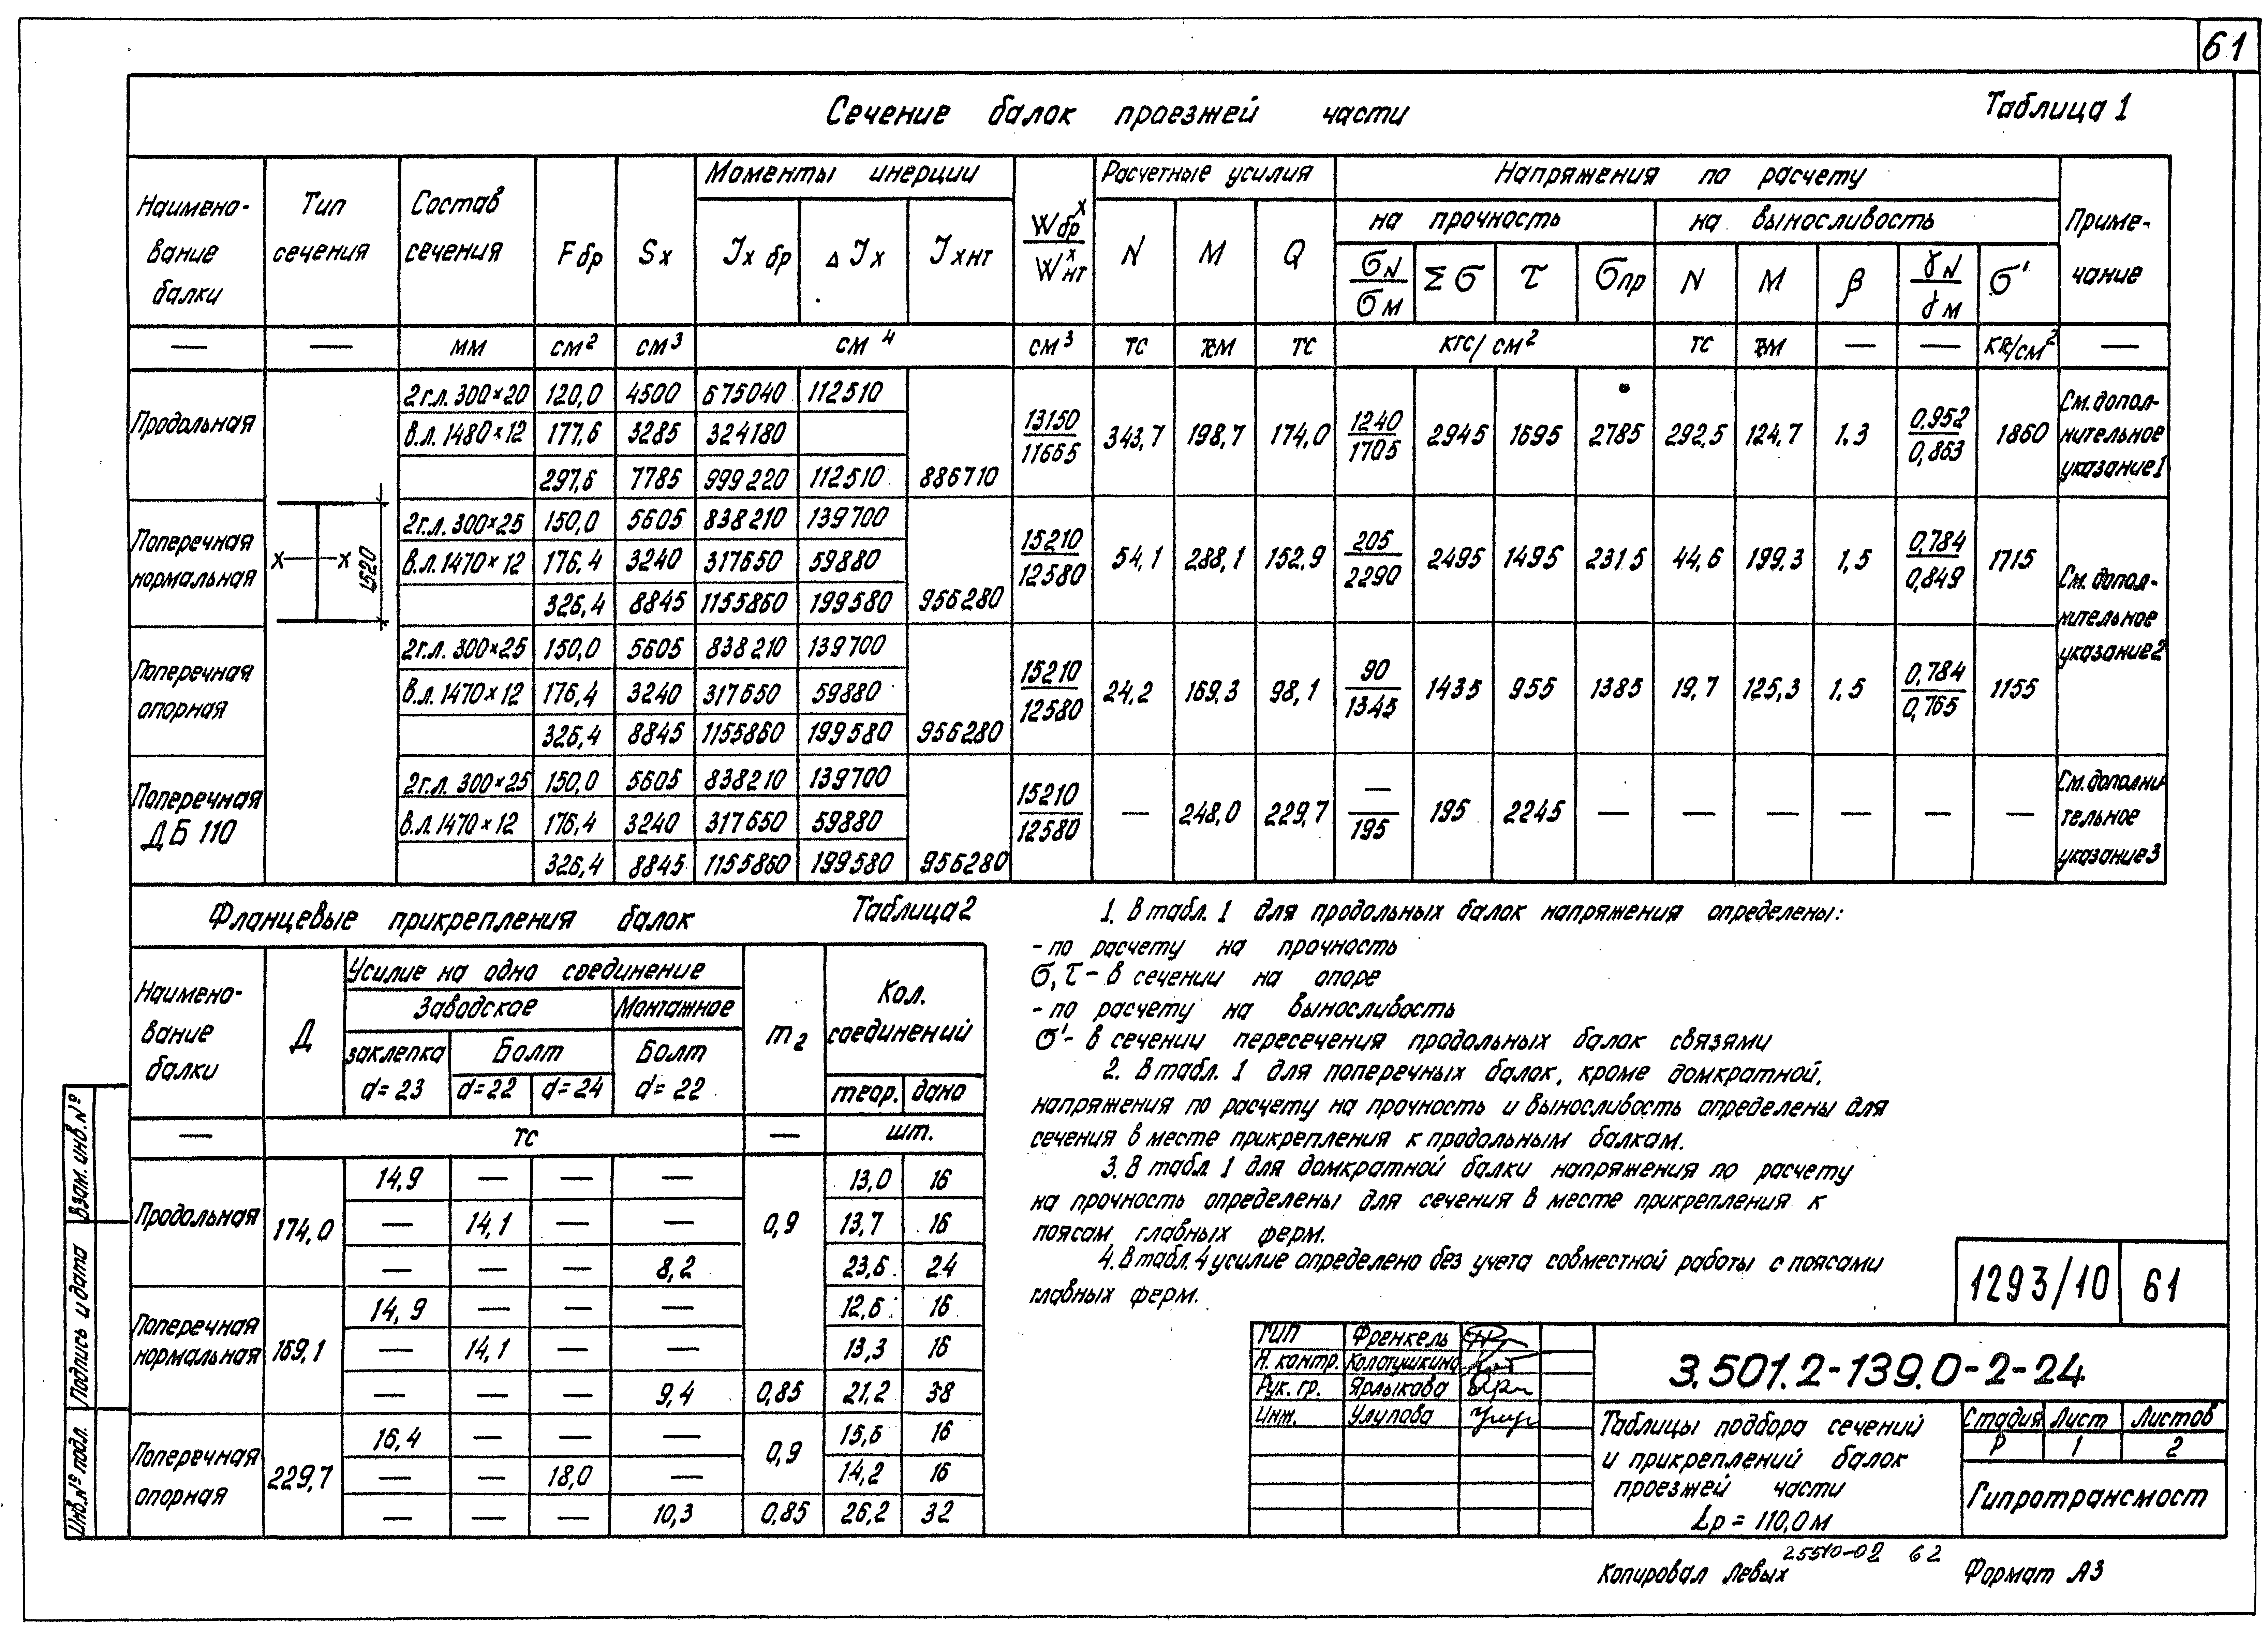 61
Сечение балок проезжей части
Таблица 1
Наимено-вание балки | Тип сечения | Состав сечения | Fбр | Sх | Моменты инерции | Wбр х / Wнт х | Расчетные усилия | Напряжения по расчету | Приме-чание
Jх бр | ΔJх | Jхнт | N | M | Q | на прочность | на выносливость
σN/σМ | Σσ | τ | σпр | N | M | β | γN/γМ | σ'
— | — | мм | см² | см³ | см⁴ | см³ | тс | тсм | тс | кгс/см² | тс | тсм | — | — | кгс/см² | —
Продольная
2г.л. 300×20 | 120,0 | 4500 | 675040 | 112510
в.л. 1480×12 | 177,6 | 3285 | 324180
297,6 | 7785 | 999220 | 112510 | 886710
13150/11665 | 343,7 | 198,7 | 174,0 | 1240/1705 | 2945 | 1695 | 2785 | 292,5 | 124,7 | 1,3 | 0,952/0,863 | 1860 | См. допол-нительное указание 1
Поперечная нормальная
х х 1520
2г.л. 300×25 | 150,0 | 5605 | 838210 | 139700
в.л. 1470×12 | 176,4 | 3240 | 317650 | 59880
326,4 | 8845 | 1155860 | 199580 | 956280
15210/12580 | 54,1 | 288,1 | 152,9 | 205/2290 | 2495 | 1495 | 2315 | 44,6 | 199,3 | 1,5 | 0,784/0,849 | 1715 | См. допол-нительное указание 2
Поперечная опорная
2г.л. 300×25 | 150,0 | 5605 | 838210 | 139700
в.л. 1470×12 | 176,4 | 3240 | 317650 | 59880
326,4 | 8845 | 1155860 | 199580 | 956280
15210/12580 | 24,2 | 169,3 | 98,1 | 90/1345 | 1435 | 955 | 1385 | 19,7 | 125,3 | 1,5 | 0,784/0,765 | 1155
Поперечная ДБ 110
2г.л. 300×25 | 150,0 | 5605 | 838210 | 139700
в.л. 1470×12 | 176,4 | 3240 | 317650 | 59880
326,4 | 8845 | 1155860 | 199580 | 956280
15210/12580 | — | 248,0 | 229,7 | —/195 | 195 | 2245 | — | — | — | — | — | — | См. дополни-тельное указание 3
Фланцевые прикрепления балок
Таблица 2
Наимено-вание балки | Д | Усилие на одно соединение | m₂ | Кол. соединений
Заводское | Монтажное
заклепка d=23 | Болт d=22 | d=24 | Болт d=22 | теор. | дано
— | тс | — | шт.
Продольная | 174,0 | 14,9 | — | — | — | 0,9 | 13,0 | 16
— | 14,1 | — | — | 13,7 | 16
— | — | — | 8,2 | 23,6 | 24
Поперечная нормальная | 169,1 | 14,9 | — | — | — | 12,6 | 16
— | 14,1 | — | — | 13,3 | 16
— | — | — | 9,4 | 0,85 | 21,2 | 38
Поперечная опорная | 229,7 | 16,4 | — | — | — | 0,9 | 15,6 | 16
— | — | 18,0 | — | 14,2 | 16
— | — | — | 10,3 | 0,85 | 26,2 | 32
1. В табл. 1 для продольных балок напряжения определены:
- по расчету на прочность
σ, τ - в сечении на опоре
- по расчету на выносливость
σ' - в сечении пересечения продольных балок связями
2. В табл. 1 для поперечных балок, кроме домкратной,
напряжения по расчету на прочность и выносливость определены для
сечения в месте прикрепления к продольным балкам.
3. В табл. 1 для домкратной балки напряжения по расчету
на прочность определены для сечения в месте прикрепления к
поясам главных ферм.
4. В табл. 4 усилие определено без учета совместной работы с поясами
главных ферм.
1293/10 | 61
ГИП | Френкель
Н. контр. | Колотушкина
Рук. гр. | Ярлыкова
Инж. | Улупова
3.501.2-139.0-2-24
Таблицы подбора сечений
и прикреплений балок
проезжей части
Lр = 110,0 м
Стадия | Лист | Листов
Р | 1 | 2
Гипротрансмост
25510-02 62
Копировал Левых
Формат А3
Взам. инв. №
Подпись и дата
Инв. № подл.